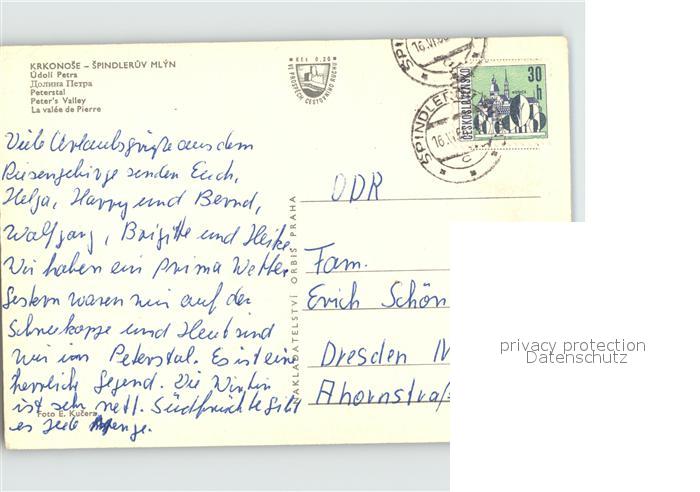 KRKONOŠE – ŠPINDLERŮV MLÝN
Údolí Petra
Долина Петра
Peterstal
Peter's Valley
La valée de Pierre
Kčs 0,20
VE PROSPĚCH CESTOVNÍHO RUCHU
16.VI.
ŠPINDLERŮV
16.VI.6
ČESKOSLOVENSKO
30 h
Viele Urlaubsgrüße aus dem
Riesengebirge senden Euch,
Helga, Harry und Bernd,
Wolfgang, Brigitte und Heike.
Wir haben ein prima Wetter.
Gestern waren wir auf der
Schneekoppe und Heut sind
wir im Peterstal. Es ist eine
herrliche Gegend. Die Wirtin
ist sehr nett. Südfrüchte gibt
es jede Menge.
Foto E. Kučera
NAKLADATELSTVÍ ORBIS PRAHA
DDR
Fam.
Erich Schön
Dresden N
Ahornstraß
privacy protection
Datenschutz